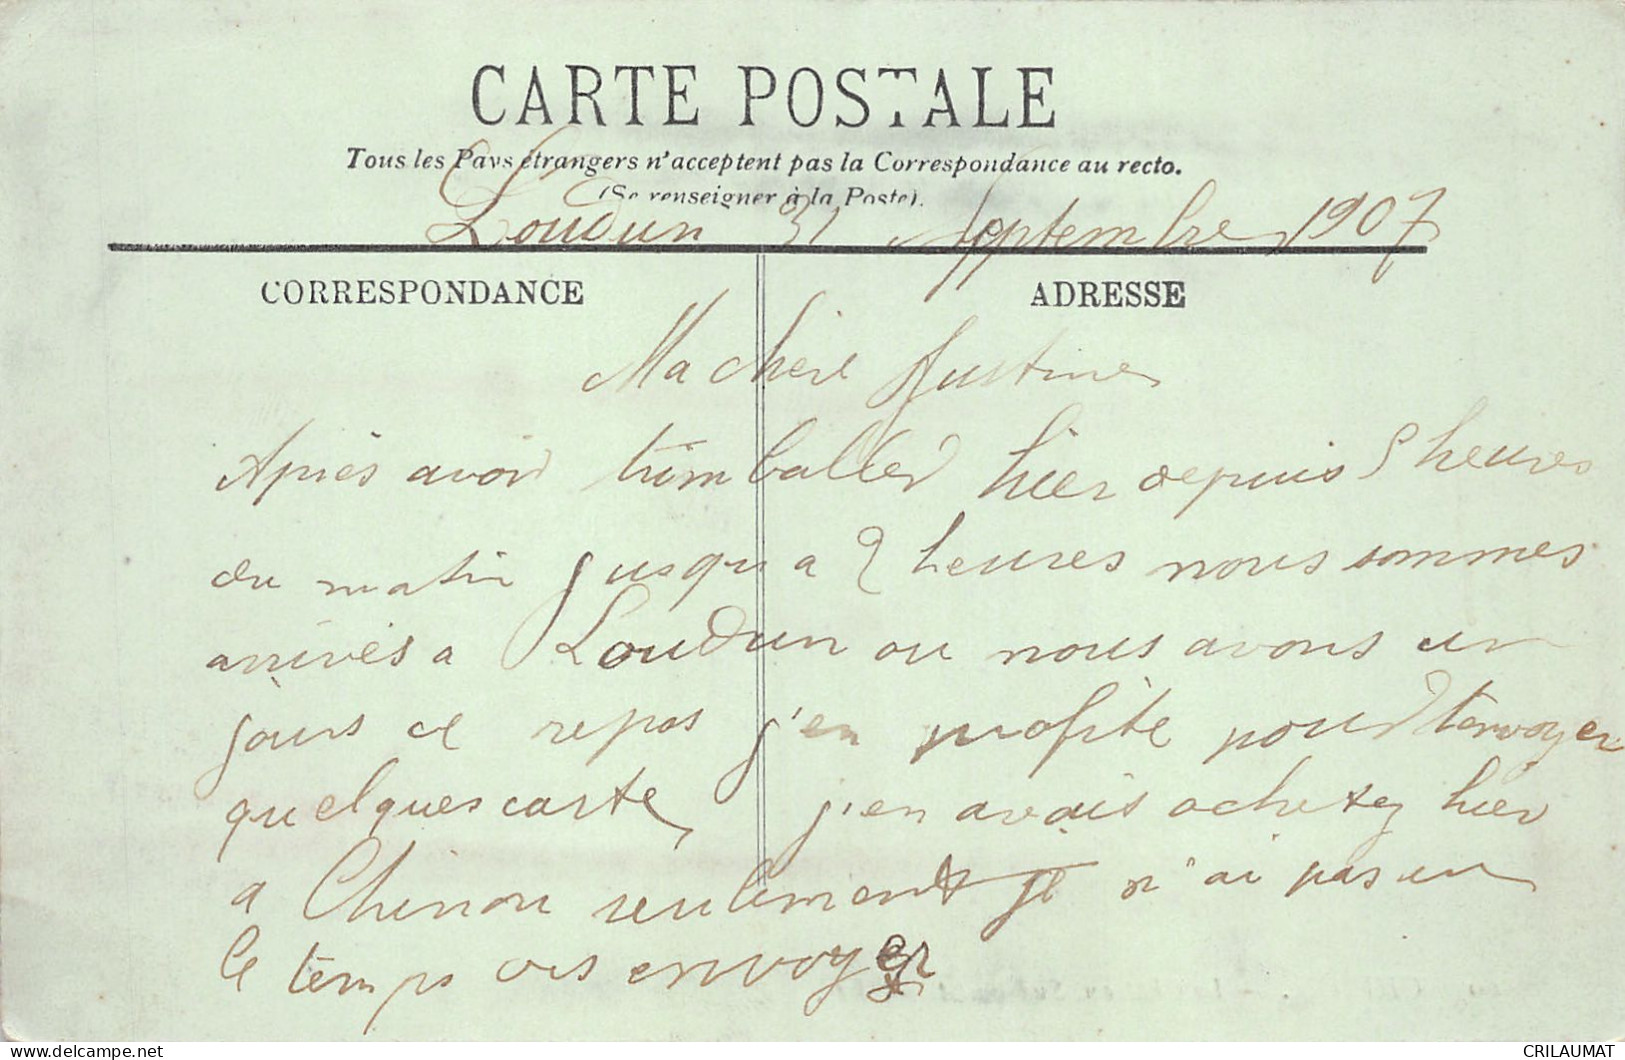 CARTE POSTALE
Tous les Pays étrangers n'acceptent pas la Correspondance au recto.
(Se renseigner à la Poste).
Loudun 31 Septembre 1907
CORRESPONDANCE
ADRESSE
Ma chère Justine
Après avoir trimballer hier depuis 5 heures
du matin jusqu a 2 heures nous sommes
arrivés a Loudun ou nous avons un
jours de repos j'en profite pour t'envoyer
quelques carte, j'en avais achetez hier
a Chinon seulement je n'ai pas eu
le temps des envoyer
CRILAUMAT